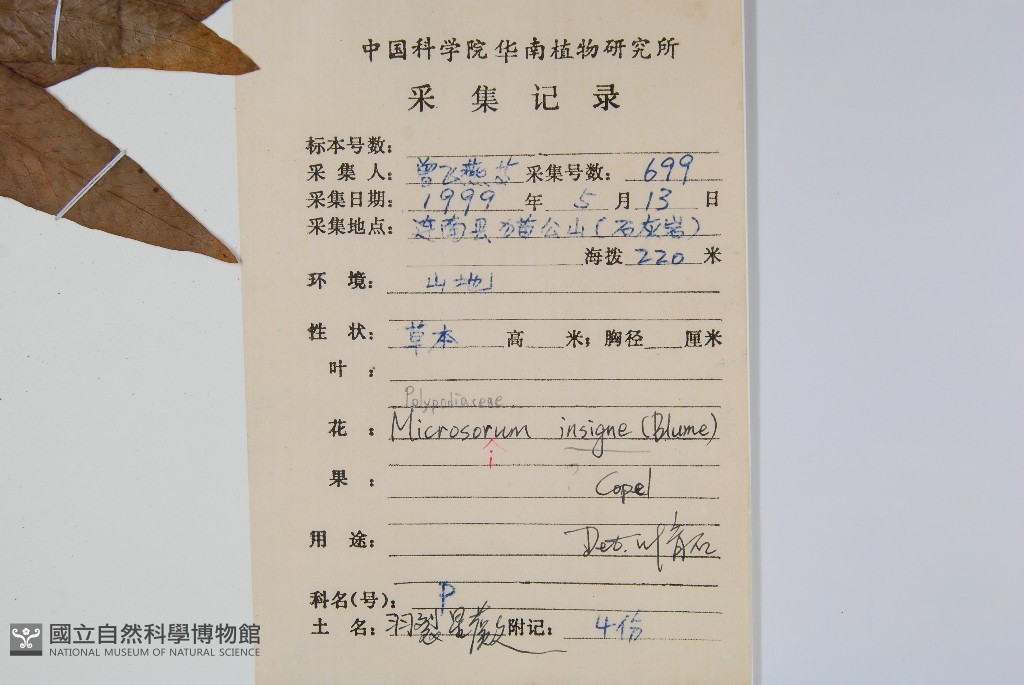 中国科学院华南植物研究所
采集记录
标本号数:
采集人: 曾飞燕 采集号数: 699
采集日期: 1999 年 5 月 13 日
采集地点: 连南县猫公山(石灰岩)
海拨 220 米
环境: 山地
性状: 草本 高 米; 胸径 厘米
叶:
Polypodiaceae
花: Microsorum insigne (Blume)
i
果: Copel
用途: Det.
科名(号): P
土名: 羽裂星蕨 附记: 4份
國立自然科學博物館
NATIONAL MUSEUM OF NATURAL SCIENCE